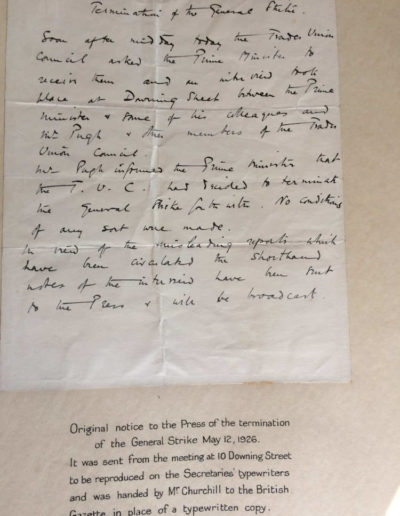 Termination of the General Strike.
Soon after midday today the Trades Union
Council asked the Prime Minister to
receive them and an interview took
place at Downing Street between the Prime
Minister & some of his colleagues and
Mr Pugh & other members of the Trades
Union Council.
Mr Pugh informed the Prime Minister that
the T.U.C. had decided to terminate
the General Strike forthwith. No conditions
of any sort were made.
In view of the misleading reports which
have been circulated the shorthand
notes of the interview have been sent
to the Press & will be broadcast.
Original notice to the Press of the termination
of the General Strike May 12, 1926.
It was sent from the meeting at 10 Downing Street
to be reproduced on the Secretaries' typewriters
and was handed by Mr Churchill to the British
Gazette in place of a typewritten copy.